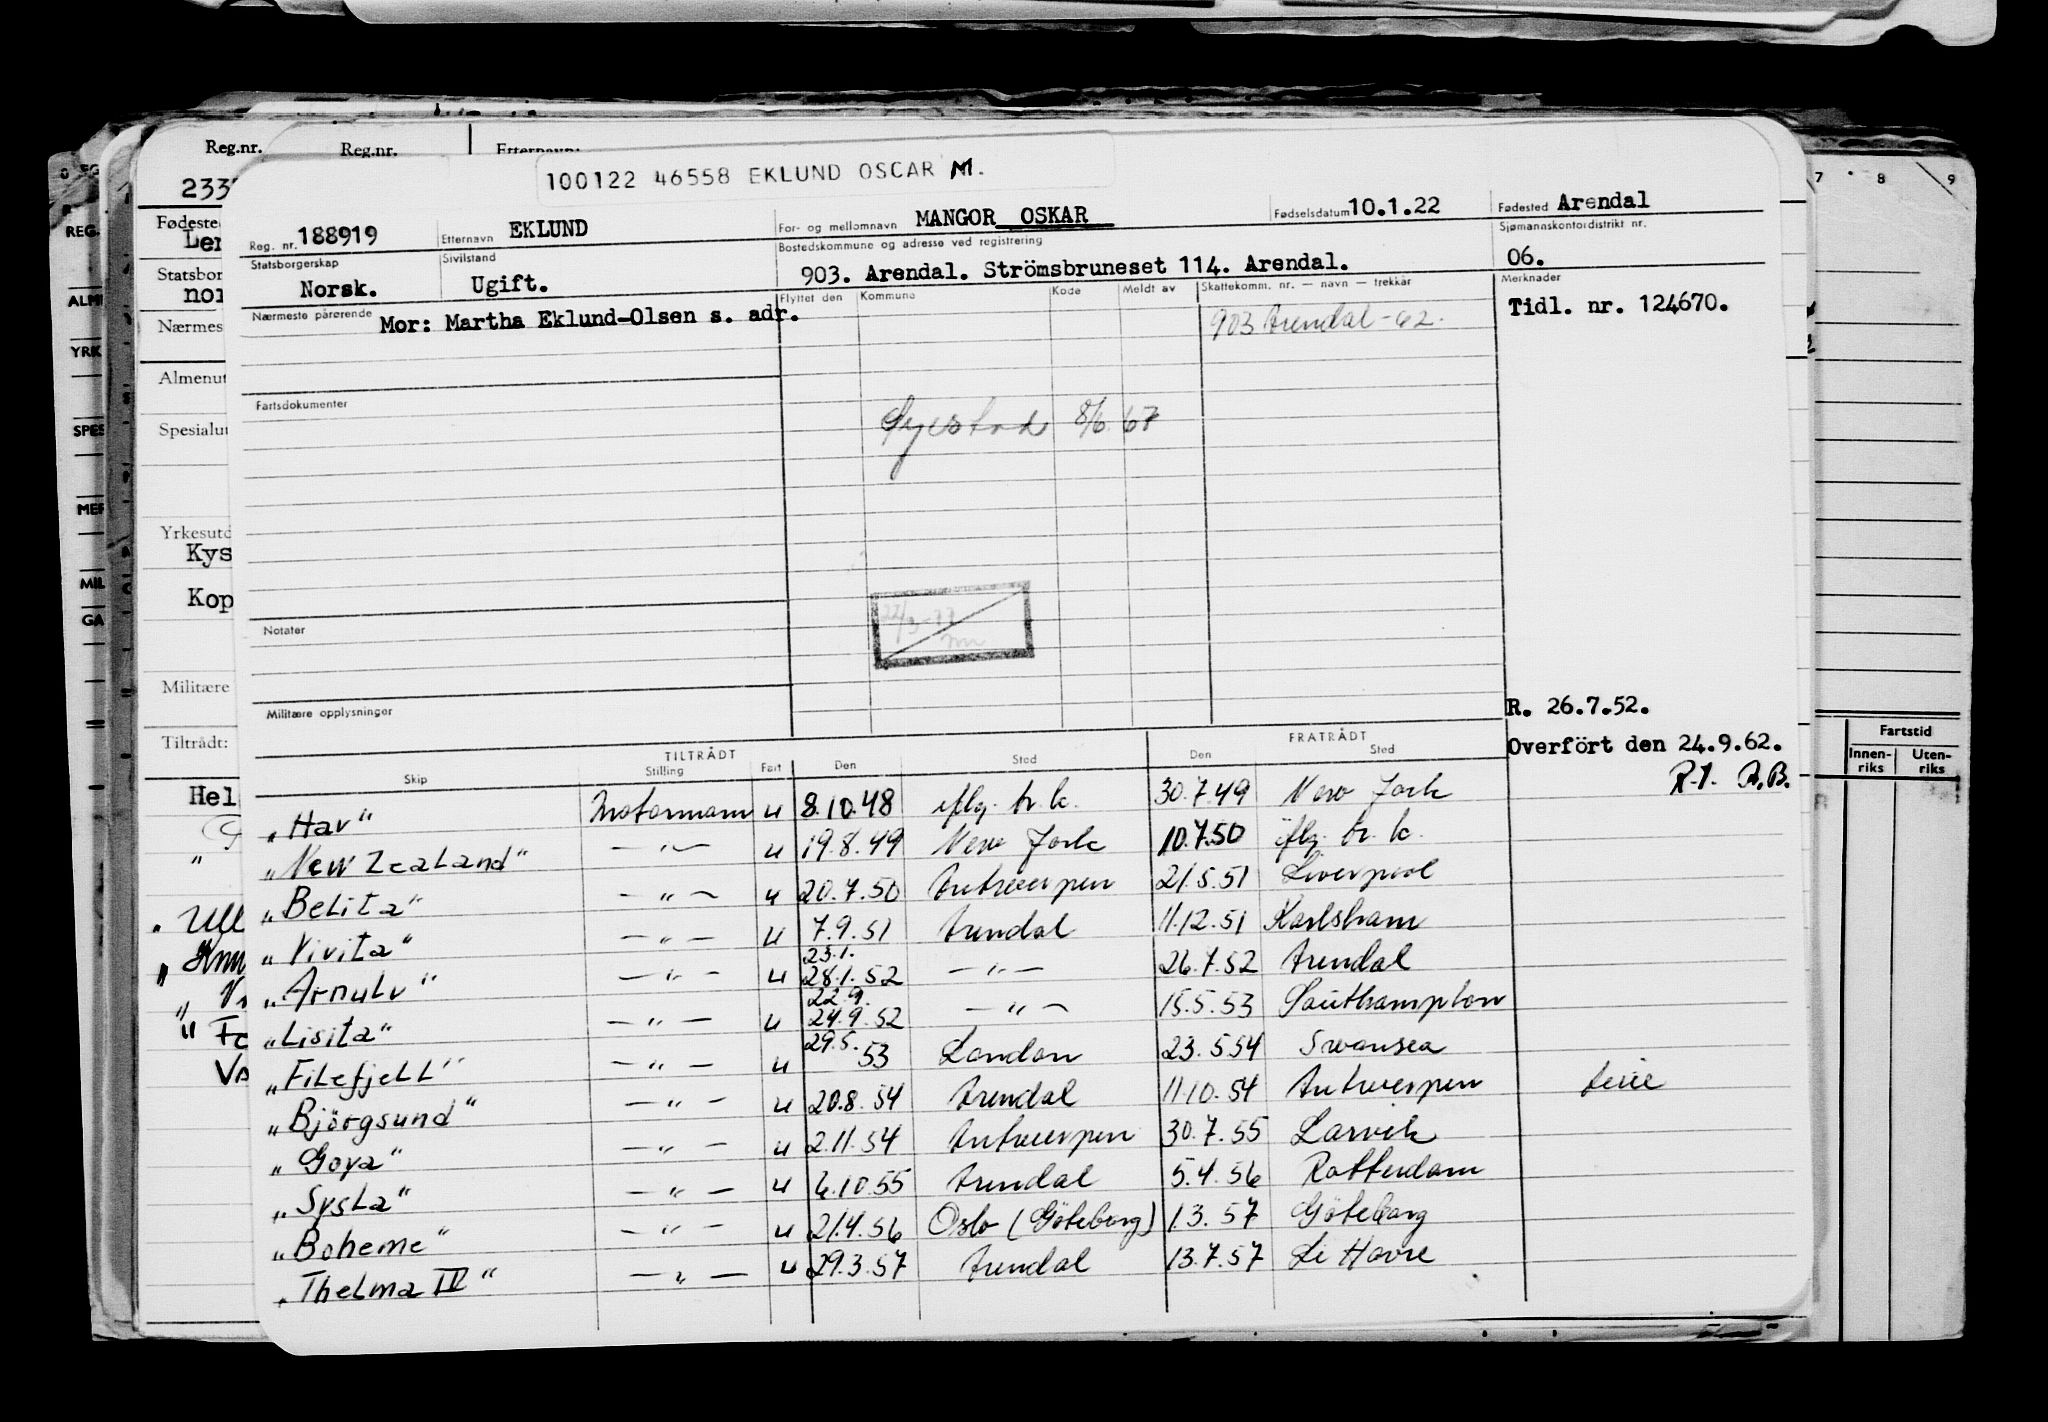 Reg.nr. Reg.nr. Etternavn:
100122 46558 EKLUND OSCAR M.
Reg. nr. 188919 Etternavn EKLUND For- og mellomnavn MANGOR OSKAR Fødselsdatum 10.1.22 Fødested Arendal
Statsborgerskap Norsk. Sivilstand Ugift. Bostedskommune og adresse ved registrering 903. Arendal. Strömsbruneset 114. Arendal. Sjømannskontordistrikt nr. 06.
Nærmeste pårørende Mor: Martha Eklund-Olsen s. adr. Flyttet den Kommune Kode Meldt av Skattekomm. nr. — navn — trekkår Merknader
903 Arendal - 62. Tidl. nr. 124670.
Fartsdokumenter
8/6 67
Notater
Militære opplysninger
R. 26.7.52.
Overfört den 24.9.62.
TILTRÅDT FRATRÅDT
Skip Stilling Fart Den Sted Den Sted
„Hav" Motormann u 8.10.48 eflg. br. k. 30.7.49 New York
„New Zealand" — „ — u 19.8.49 New York 10.7.50 iflg. br. k.
„Belita" — „ — u 20.7.50 Antwerpen 21.5.51 Liverpool
„Vivita" — „ — u 7.9.51 Arendal 11.12.51 Karlshamn
„Arnulv" — „ — u 23.1. 28.1.52 — „ — 26.7.52 Arendal
„Lisita" — „ — u 22.9. 24.9.52 — „ — 15.5.53 Southampton
„Filefjell" — „ — u 29.5. 53 London 23.5 54 Swansea
„Björgsund" — „ — u 20.8.54 Arendal 11.10.54 Antwerpen ferie
„Goya" — „ — u 2.11.54 Antwerpen 30.7.55 Larvik
„Sysla" — „ — u 6.10.55 Arendal 5.4.56 Rotterdam
„Boheme" — „ — u 21.4.56 Oslo (Göteborg) 1.3.57 Göteborg
„Thelma IV" — „ — u 29.3.57 Arendal 13.7.57 Le Havre
7 8 9
Fartstid
Innen-riks Uten-riks